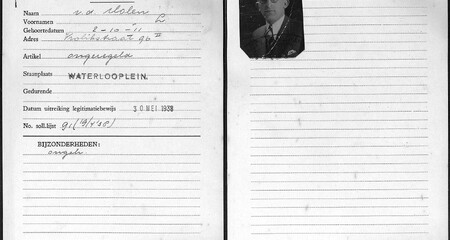 Naam v.d. Molen
Voornamen L
Geboortedatum 2-10-'11
Adres 90 II
Artikel ongeregeld
Staanplaats WATERLOOPLEIN.
Gedurende
Datum uitreiking legitimatiebewijs 30 MEI 1938
No. soll.lijst 91
BIJZONDERHEDEN:
ongeh.